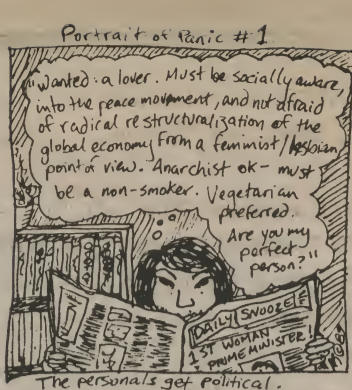 Portrait of Panic #1
"Wanted: a lover. Must be socially aware,
into the peace movement, and not afraid
of radical restructuralization of the
global economy from a feminist/lesbian
point of view. Anarchist ok - must
be a non-smoker. Vegetarian
preferred.
Are you my
perfect
person?"
DAILY SNOOZE
1ST WOMAN
PRIME MINISTER!
The personals get political.